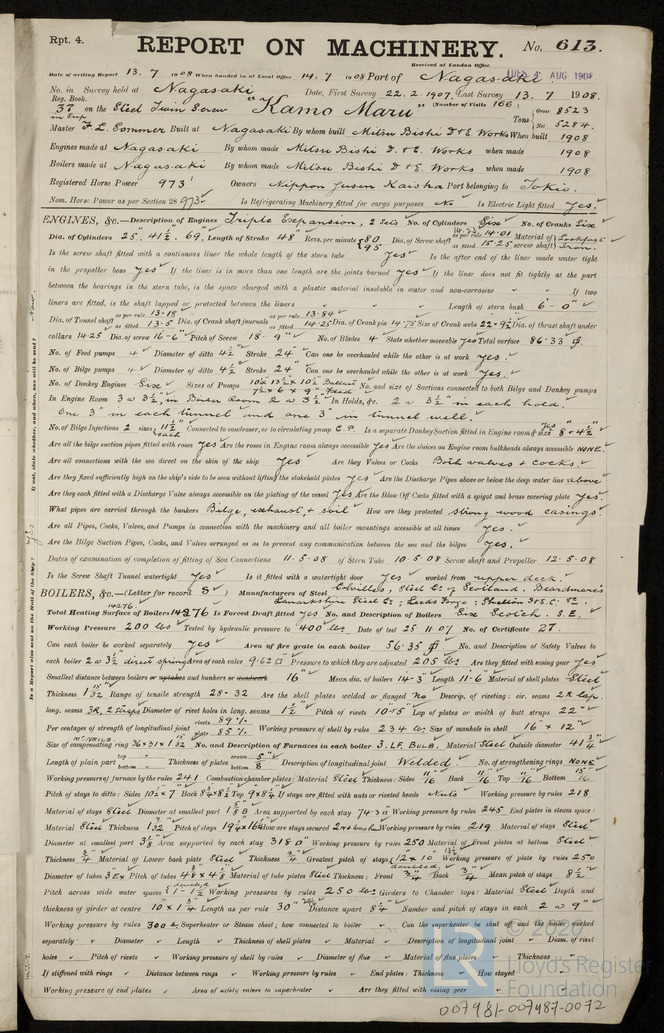 Rpt. 4.
REPORT ON MACHINERY. No. 613.
Received at London Office
Date of writing Report 13.7 1908 When handed in at Local Office 14.7 1908 Port of Nagasaki AUG 1908
No. in Survey held at Nagasaki Date, First Survey 22.2.1907, Last Survey 13.7 1908.
Reg. Book.
37 on the Steel Twin Screw "Kamo Maru" (Number of Visits 166)
in Sup Tons { Gross 8523 Net 5284
Master F. L. Sommer Built at Nagasaki By whom built Mitsu Bishi D & E. Works When built 1908
Engines made at Nagasaki By whom made Mitsu Bishi D. & E. Works when made 1908
Boilers made at Nagasaki By whom made Mitsu Bishi D. & E. Works when made 1908
Registered Horse Power 973 Owners Nippon Yusen Kaisha Port belonging to Tokio.
Nom. Horse Power as per Section 28 973 Is Refrigerating Machinery fitted for cargo purposes No Is Electric Light fitted Yes
ENGINES, &c.—Description of Engines Triple Expansion, 2 sets No. of Cylinders Six No. of Cranks Six
Dia. of Cylinders 25", 41½", 69" Length of Stroke 48" Revs. per minute { 80 95 Dia. of Screw shaft as per rule 14.01 as fitted 15.25 Material of screw shaft Iron
Is the screw shaft fitted with a continuous liner the whole length of the stern tube Yes Is the after end of the liner made water tight
in the propeller boss Yes If the liner is in more than one length are the joints burned Yes If the liner does not fit tightly at the part
between the bearings in the stern tube, is the space charged with a plastic material insoluble in water and non-corrosive " If two
liners are fitted, is the shaft lapped or protected between the liners " Length of stern bush 6'-0"
Dia. of Tunnel shaft as per rule 13.18 as fitted 13.5 Dia. of Crank shaft journals as per rule 13.84 as fitted 14.25 Dia. of Crank pin 14.75 Size of Crank webs 22"×9½ Dia. of thrust shaft under
collars 14.25 Dia. of screw 16-6" Pitch of Screw 18-9" No. of Blades 4 State whether moveable Yes Total surface 86.33
No. of Feed pumps 4 Diameter of ditto 4½" Stroke 24" Can one be overhauled while the other is at work Yes.
No. of Bilge pumps 4 Diameter of ditto 4½ Stroke 24" Can one be overhauled while the other is at work Yes.
No. of Donkey Engines Six Sizes of Pumps 10×13½×10½ Ballast 7½×6×9" Feed No. and size of Suctions connected to both Bilge and Donkey pumps
In Engine Room 3 @ 3½", in Boiler Room 2 @ 3½" In Holds, &c. 2 @ 3½" in each hold
One 3" in each tunnel and one 3" in tunnel well.
No. of Bilge Injections 2 sizes 11½" each Connected to condenser, or to circulating pump C.P. Is a separate Donkey Suction fitted in Engine room & size Yes 8" & 4½"
Are all the bilge suction pipes fitted with roses Yes Are the roses in Engine room always accessible Yes Are the sluices on Engine room bulkheads always accessible NONE.
Are all connections with the sea direct on the skin of the ship Yes Are they Valves or Cocks Both valves & cocks.
Are they fixed sufficiently high on the ship's side to be seen without lifting the stokehold plates Yes Are the Discharge Pipes above or below the deep water line above
Are they each fitted with a Discharge Valve always accessible on the plating of the vessel Yes Are the Blow Off Cocks fitted with a spigot and brass covering plate Yes.
What pipes are carried through the bunkers Bilge, exhaust, & soil How are they protected strong wood casings.
Are all Pipes, Cocks, Valves, and Pumps in connection with the machinery and all boiler mountings accessible at all times Yes.
Are the Bilge Suction Pipes, Cocks, and Valves arranged so as to prevent any communication between the sea and the bilges Yes.
Dates of examination of completion of fitting of Sea Connections 11.5.08 of Stern Tube 10.5.08 Screw shaft and Propeller 12.5.08
Is the Screw Shaft Tunnel watertight Yes Is it fitted with a watertight door Yes worked from upper deck.
BOILERS, &c.—(Letter for record S) Manufacturers of Steel Colvilles, Steel Co. of Scotland. Beardmore's
Lanarkshire Steel Co; Leeds Forge; Shelton I & S. C. Co.
Total Heating Surface of Boilers 14276 Is Forced Draft fitted Yes No. and Description of Boilers Six Scotch. S.E.
Working Pressure 200 lbs Tested by hydraulic pressure to 400 lbs Date of test 25.11.07 No. of Certificate 27.
Can each boiler be worked separately Yes Area of fire grate in each boiler 56.35 No. and Description of Safety Valves to
each boiler 2 @ 3½" direct spring Area of each valve 9.62 Pressure to which they are adjusted 205 lbs Are they fitted with easing gear Yes
Smallest distance between boilers or uptakes and bunkers or woodwork 16" Mean dia. of boilers 14-3" Length 11-6" Material of shell plates Steel
Thickness 1 15/32 Range of tensile strength 28-32 Are the shell plates welded or flanged No Descrip. of riveting: cir. seams 2R Lap
long. seams 3R. 2 Straps Diameter of rivet holes in long. seams 1½" Pitch of rivets 10.5" Lap of plates or width of butt straps 22"
Per centages of strength of longitudinal joint rivets 89% plate 85% Working pressure of shell by rules 234 lbs Size of manhole in shell 16"×12"
Size of compensating ring 36×31×1 15/32 No. and Description of Furnaces in each boiler 3. L.F. Bulb. Material Steel Outside diameter 41¾"
Length of plain part top bottom Thickness of plates crown bottom Description of longitudinal joint Welded No. of strengthening rings NONE
Working pressure of furnace by the rules 241 Combustion chamber plates: Material Steel Thickness: Sides 11/16 Back 11/16 Top 11/16 Bottom 15/16
Pitch of stays to ditto: Sides 10½×7 Back 8¾×8½ Top 9×8¼ If stays are fitted with nuts or riveted heads Nuts Working pressure by rules 218
Material of stays Steel Diameter at smallest part Area supported by each stay 74.3 Working pressure by rules 245 End plates in steam space:
Material Steel Thickness Pitch of stays How are stays secured Working pressure by rules 219 Material of stays Steel
Diameter at smallest part Area supported by each stay 318 Working pressure by rules 250 Material of Front plates at bottom Steel
Thickness ¾ Material of Lower back plate Steel Thickness ¾ Greatest pitch of stays Working pressure of plate by rules 250
Diameter of tubes 3 Ex Pitch of tubes Material of tube plates Steel Thickness: Front Back ¾ Mean pitch of stays 8½
Pitch across wide water spaces Working pressures by rules 250 lbs Girders to Chamber tops: Material Steel Depth and
thickness of girder at centre 10×1¾ Length as per rule 30" Distance apart 8¼ Number and pitch of stays in each 2 @ 9"
Working pressure by rules 300 Superheater or Steam chest; how connected to boiler Can the superheater be shut off and the boiler worked
separately Diameter Length Thickness of shell plates Material Description of longitudinal joint Diam. of rivet
holes Pitch of rivets Working pressure of shell by rules Diameter of flue Material of flue plates Thickness
If stiffened with rings Distance between rings Working pressure by rules End plates: Thickness How stayed
Working pressure of end plates Area of safety valves to superheater Are they fitted with easing gear
© 2020
Lloyd's Register
Foundation
007981-007987-0072